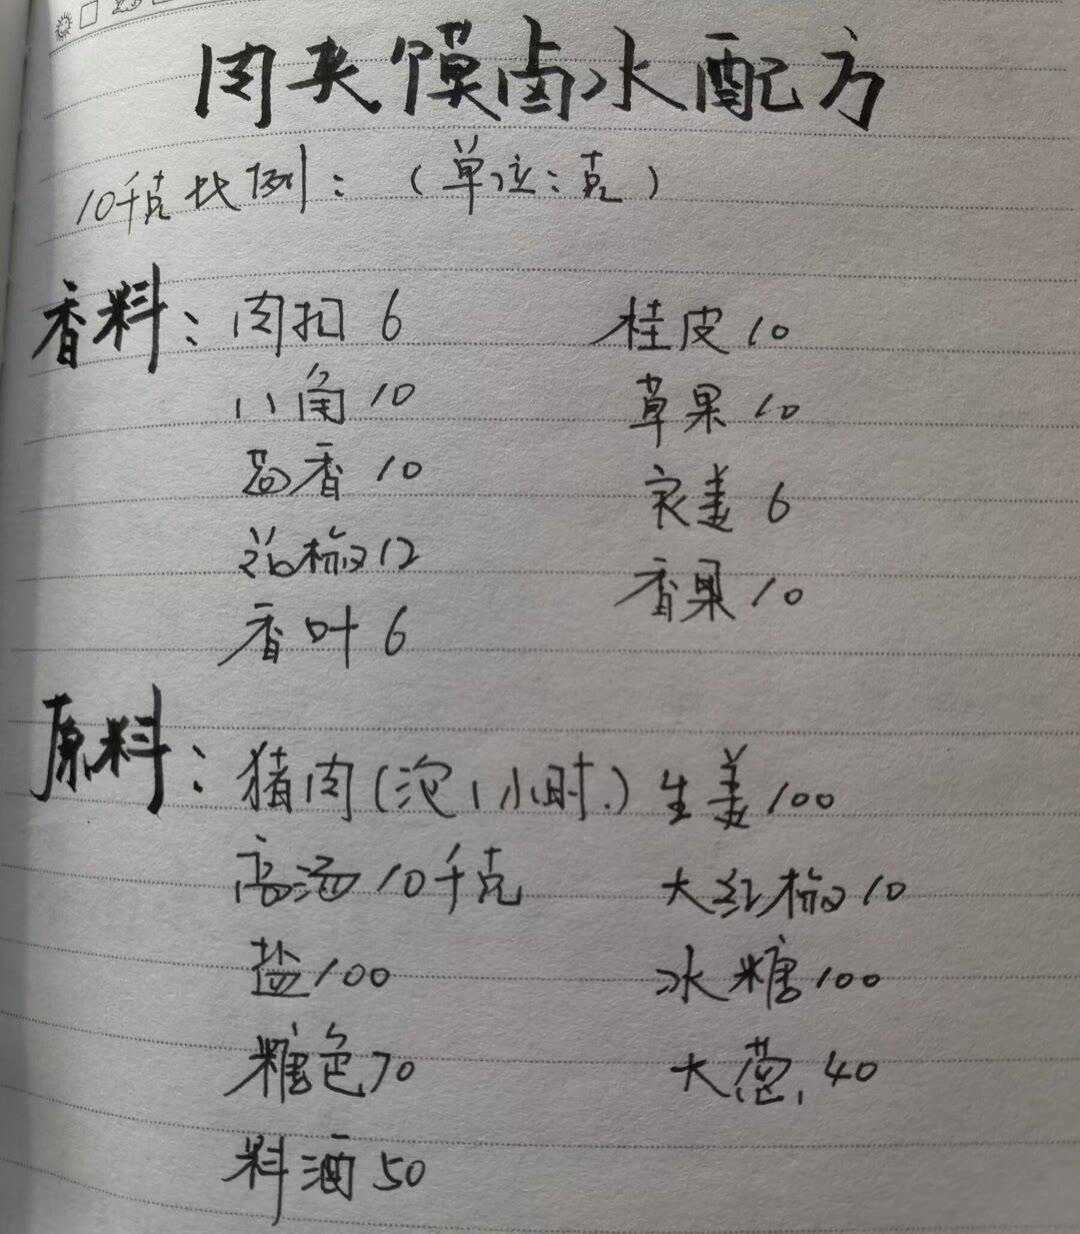 肉夹馍卤水配方
10千克比例：（单位：克）
香料：肉扣 6 桂皮 10
八角 10 草果 10
茴香 10 良姜 6
花椒 12 香果 10
香叶 6
原料：猪肉（泡1小时.）生姜 100
高汤 10千克 大红椒 10
盐 100 冰糖 100
糖色 70 大葱 40
料酒 50